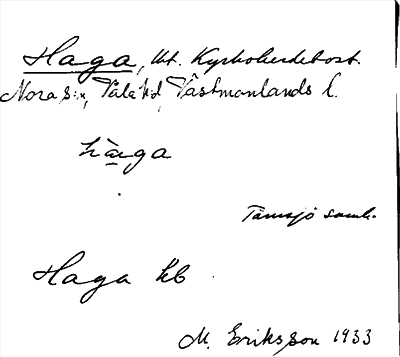 Haga, ht. Kyrkoherdebost.
Nora s:n, Våla hd, Västmanlands l.
hàga
Tärnsjö samh.
Haga kb
M. Eriksson 1933